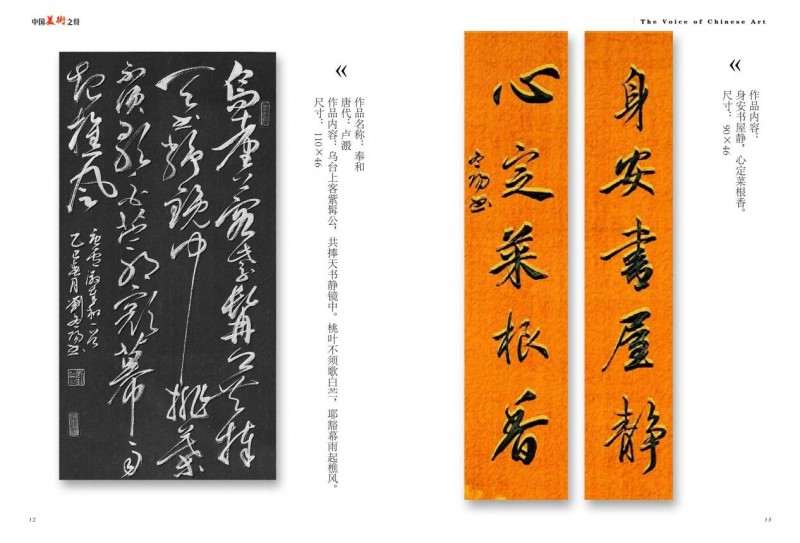 中国美術之聲
The Voice of Chinese Art
烏臺上客紫髯公共捧
天书靜鏡中桃葉
不須歌白苎耶谿幕雨
起樵風
乙巳春月劉
«
作品名称：奉和
唐代：卢溵
作品内容：乌台上客紫髯公，共捧天书静镜中。桃叶不须歌白苎，耶豁幕雨起樵风。
尺寸：110×46
身安書屋静
心定菜根香
«
作品内容：
身安书屋静，心定菜根香。
尺寸：90×46
12
13